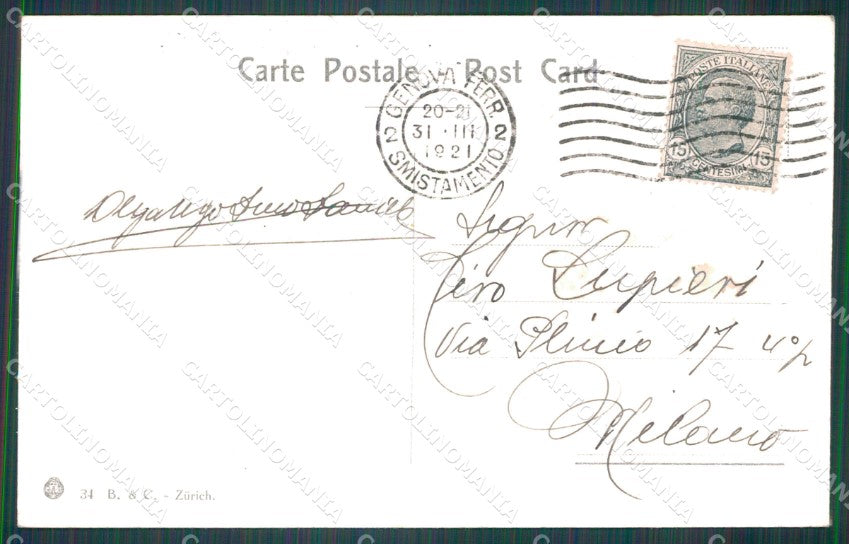 Carte Postale Post Card
GENOVA FERR.
20-21
31 · III
1921
2 2
SMISTAMENTO
POSTE ITALIANE
15 15
CENTESIMI
Signor
Ciro Lupieri
Via Plinio 17 4ºp
Milano
34 B. & C. - Zürich.
CARTOLINOMANIA